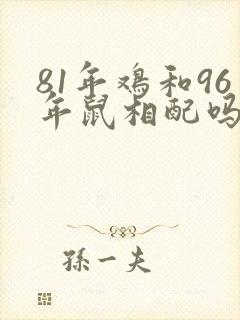 81年鸡和96
年鼠相配吗
孫一夫